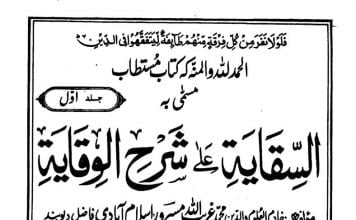 فَلَوْلَا نَفَرَ مِنْ كُلِّ فِرْقَةٍ مِنْهُمْ طَائِفَةٌ لِيَتَفَقَّهُوا فِي الدِّيْنِ
الحمد للہ والمنۃ کہ کتاب مستطاب
مسمّٰی بہ
جلد اوّل
السِّقَايَة عَلٰى شَرْحِ الْوِقَايَة
خادم العلوم والدين محمد عبد اللہ اسلام آبادی فاضل دیوبند